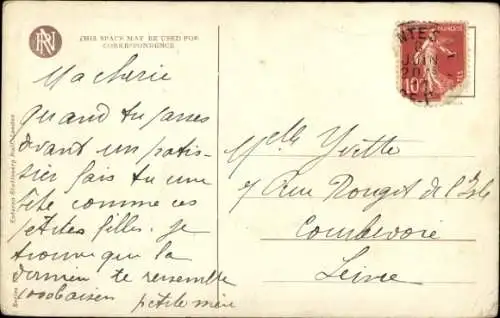 THIS SPACE MAY BE USED FOR
CORRESPONDENCE
Ma cherie
quand tu passes
devant un patis-
sier fais tu une
tête comme ces
petites filles. Je
trouve que la
derniere te ressemble
1000 baisers petite mere
NTES
JUIN
10
Mlle Yvette
7 Rue Rouget de l'Isle
Courbevoie
Seine